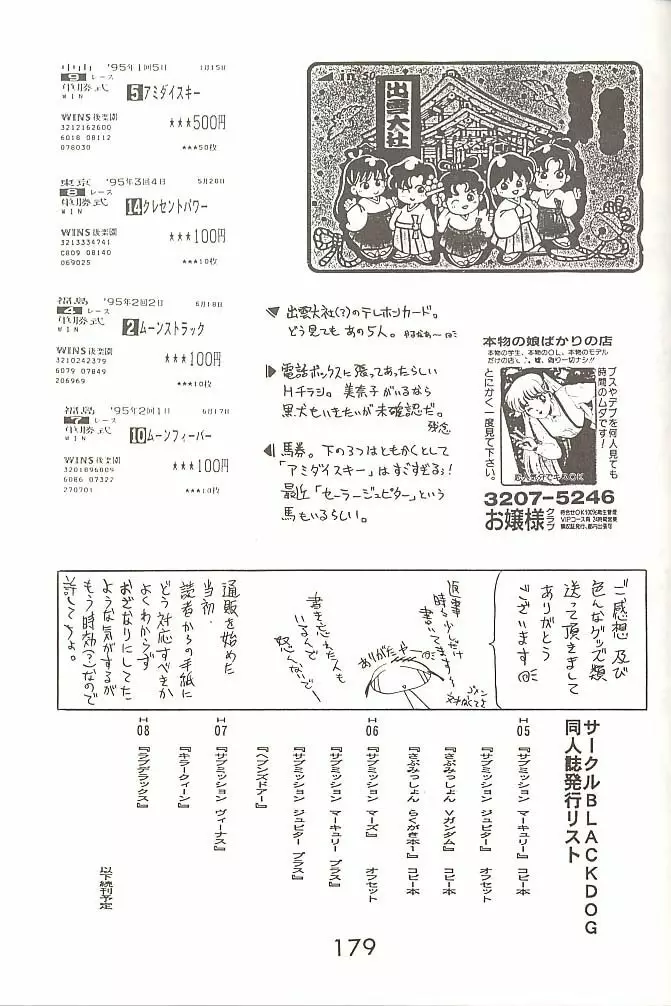 中山 '95年1回5日 1月15日
9 レース
単勝式 5 アミダイスキー
WIN
WINS後楽園 ★★★500円
3212162600
6018 08112
078030 ★★★50枚
東京 '95年3回4日 5月28日
8 レース
単勝式 14 クレセントパワー
WIN
WINS後楽園 ★★★100円
3213334741
C809 08140
069025 ★★★10枚
福島 '95年2回2日 6月18日
4 レース
単勝式 2 ムーンストラック
WIN
WINS後楽園 ★★★100円
3210242379
6079 07849
206969 ★★★10枚
福島 '95年2回1日 6月17日
7 レース
単勝式 10 ムーンフィーバー
WIN
WINS後楽園 ★★★100円
3201896809
6086 07322
270701 ★★★10枚
50
出雲大社
出雲大社(?)のテレホンカード。
どう見てもあの5人。やるなぁ〜
電話ボックスに張ってあったらしい
Hチラシ。美奈子がいるなら
黒犬もいきたいが未確認だ。
残念
馬券。下の3つはともかくとして
「アミダイスキー」はすごすぎる!
最近「セーラージュピター」という
馬もいるらしい。
本物の娘ばかりの店
本物の学生、本物のOL、本物のモデル
だけの店で、嘘、偽り一切ナシ!!
ブスやデブを何人見ても
時間のムダです!
とにかく一度見て下さい。
恋人気分でキスOK
3207-5246
お嬢様クラブ
待合せOK100%衛生管理
VIPコース有 24時間営業
領収証発行、都内出張可
ご感想 及び
色んなグッズ類
送って頂きまして
ありがとう
ございます
返事
時々少しだけ
書いてますけど
書き忘れた人も
いるんで
怒んないでー
ありがたや
通販を始めた
当初、
読者からの手紙に
どう対応すべきか
よくわからず
おざなりにしてた
ような気がするが
もう時効(?)なので
許してちょ。
サークルBLACKDOG
同人誌発行リスト
H05 『サブミッション マーキュリー』 コピー本
『サブミッション ジュピター』 オフセット
『さぶみっしょん Vガンダム』 コピー本
『さぶみっしょん らくがきホー』 コピー本
H06 『サブミッション マーズ』 オフセット
『サブミッション マーキュリー プラス』
『サブミッション ジュピター プラス』
『ヘブンズドアー』
H07 『サブミッション ヴィーナス』
『キラークィーン』
H08 『ラブデラックス』
以下続刊予定
179